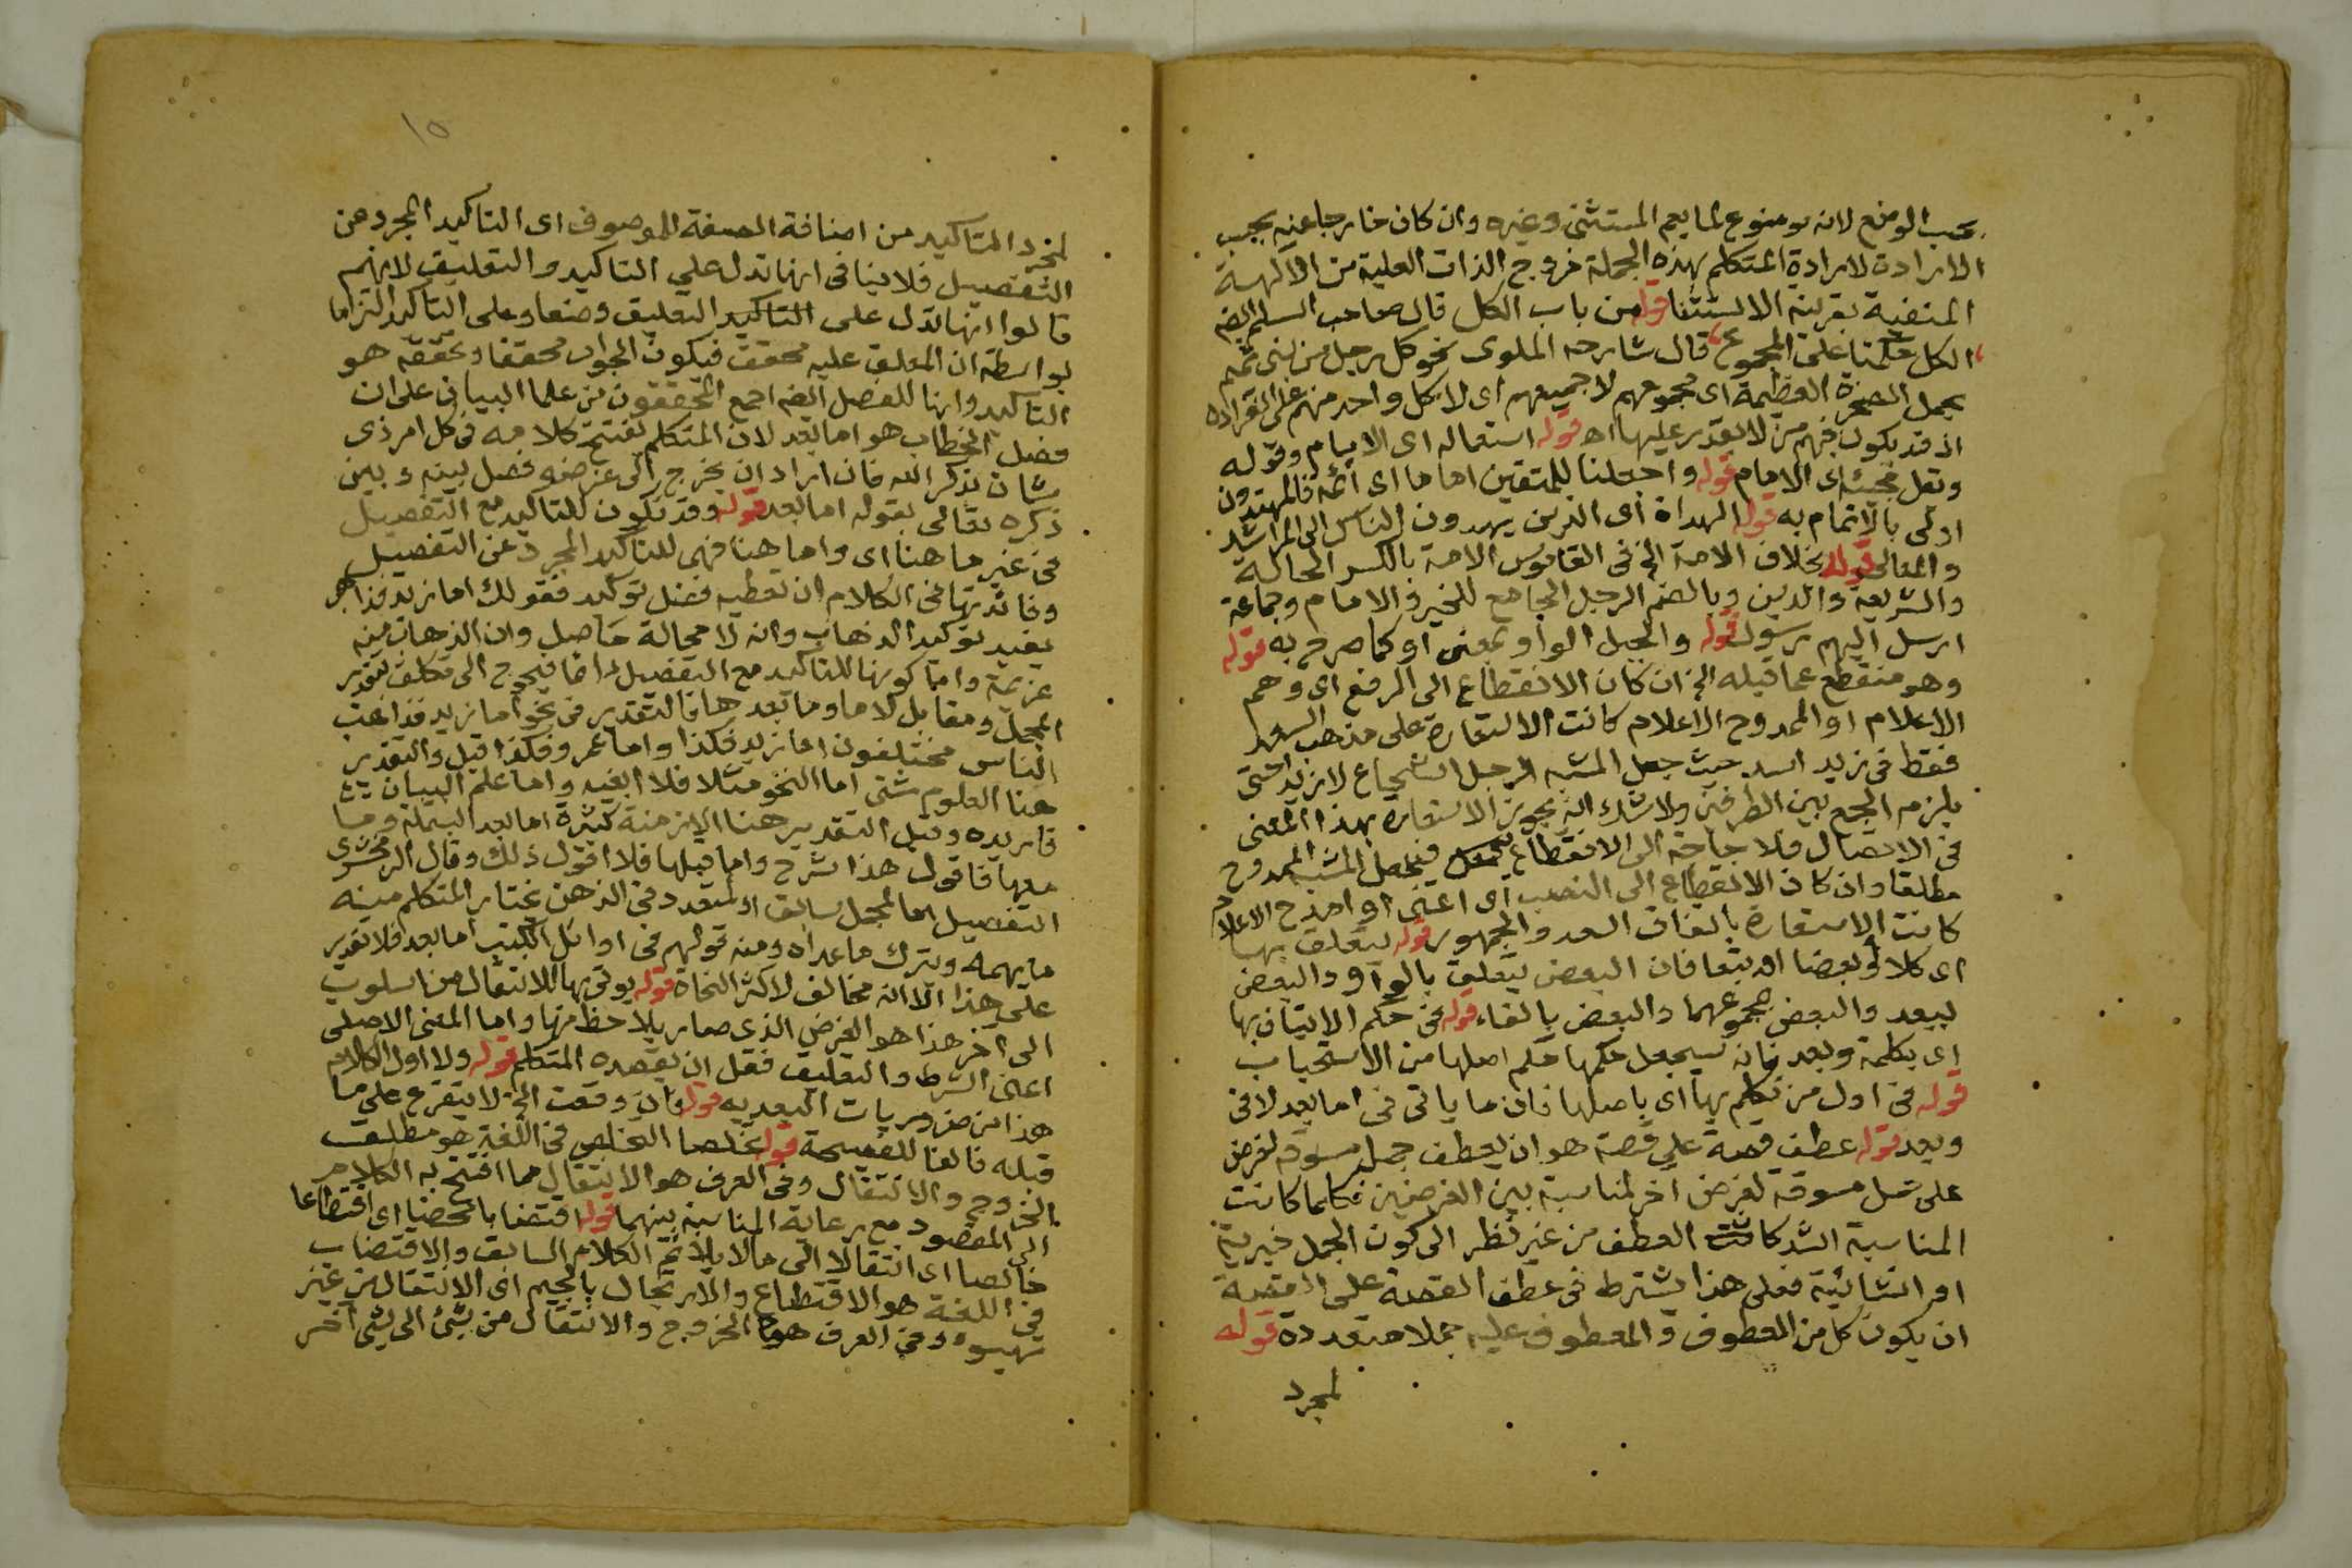 بحسب الوضع لانه موضوع لما يعم المستثنى وغيره وان كان خارجا عنه بحسب
الارادة لارادة المتكلم بهذه الجملة خروج الذات العلية من الآلهة
المنفية بقرينة الاستثنا قوله من باب الكل قال صاحب السلم الضم
الكل حكمنا على المجموع قال شارحه الملوى نحو كل رجل من بنى تميم
يحمل الصخرة العظيمة اى مجموعهم لا جميعهم اى لا كل واحد منهم على انفراده
اذ قد يكون فيهم من لا يقدر عليها اه قوله استعماله اى الامام وقوله
وقل مجيئه اى الامام قوله واجعلنا للمتقين اماما اى أئمة فالمهتدون
اولى بالائتمام به قوله الهداة اى الذين يهدون الناس الى المراشد
والمعالى قوله بخلاف الامة الخ فى القاموس الامة بالكسر الحالة
والشريعة والدين وبالضم الرجل الجامع للخير والامام وجماعة
ارسل اليهم رسول قوله والجيل الواو بمعنى او كما صرح به قوله
وهو منقطع عما قبله الخ ان كان الانقطاع الى الرفع اى وهم
الاعلام او الممدوح الاعلام كانت الاستعارة على مذهب السعد
فقط فى زيد اسد حيث جعل المشبه الرجل الشجاع لا زيد حتى
يلزم الجمع بين الطرفين ولا شك انه يجوز الاستعارة بهذا المعنى
فى الاتصال فلا حاجة الى الانقطاع فيجعل المشبه الممدوح
مطلقا وان كان الانقطاع الى النصب اى اعنى او امدح الاعلام
كانت الاستعارة باتفاق السعد والجمهور قوله يتعلق بها
اى كلا او بعضا او تبعا فان البعض يتعلق بالواو والبعض
ببعد والبعض بمجموعهما والبعض بالفاء قوله فى حكم الاتيان بها
اى بكلمة وبعد فانه سيجعل حكمها حكم اصلها من الاستحباب
قوله فى اول من تكلم بها اى باصلها فان ما ياتى فى اما بعد لا فى
وبعد قوله عطف قصة على قصة هو ان يعطف جمل مسوقة لغرض
على جمل مسوقة لغرض اخر لمناسبة بين الغرضين فكلما كانت
المناسبة اشد كانت العطف من غير نظر الى كون الجمل خبرية
او انشائية فعلى هذا يشترط فى عطف القصة على القصة
ان يكون كل من المعطوف والمعطوف عليه جملا متعددة قوله
لمجرد
١٥
لمجرد التاكيد من اضافة الصفة للموصوف اى التاكيد المجرد عن
التفصيل فلا ينافى انها تدل على التاكيد والتعليق لانهم
قالوا انها تدل على التاكيد التعليق وضعا وعلى التاكيد التزاما
بواسطة ان المعلق عليه محقق فيكون الجواب محققا وتحققه هو
التاكيد وانها للفصل الضم اجمع المحققون من علما البيان على ان
فصل الخطاب هو اما بعد لان المتكلم يفتتح كلامه فى كل امر ذى
شان بذكر الله فان اراد ان يخرج الى غرضه فصل بينه وبين
ذكره تعالى بقوله اما بعد قوله وقد تكون للتاكيد مع التفصيل
فى غير ما هنا اى واما هنا فهى للتاكيد المجرد عن التفصيل
وفائدتها فى الكلام ان تعطيه فضل توكيد فقولك اما زيد فذاهب
يفيد توكيد الذهاب وانه لا محالة حاصل وان الذهاب منه
عزيمة واما كونها للتاكيد مع التفصيل ايضا فيحوج الى تكلف تقدير
المجمل ومقابل لاما وما بعدها فالتقدير فى نحو اما زيد فذاهب
الناس مختلفون اما زيد فكذا واما عمرو فكذا قيل والتقدير
هنا العلوم شتى اما النحو مثلا فلا ابغيه واما علم البيان
فاريده وقيل التقدير هنا الازمنة كثيرة اما بعد البسملة وما
معها فاقول هذا شرح واما قبلها فلا اقول ذلك وقال الزمخشرى
التفصيل اما لمجمل سابق او لمتعدد فى الذهن يختار المتكلم منه
ما يهمه ويترك ما عداه ومنه قولهم فى اوائل الكتب اما بعد فلا تقدير
على هذا الا انه مخالف لاكثر النحاة قوله يؤتى بها للانتقال من اسلوب
الى اخر هذا هو الغرض الذى صار يلاحظ منها واما المعنى الاصلى
اعنى الشرط والتعليق فقل ان يقصده المتكلم قوله ولا اول الكلام
هذا من ضروريات البعدية قوله فان وقعت الخ لا يتفرع على ما
قبله فالفا للفصيحة قوله تخلصا التخلص فى اللغة هو مطلق
الخروج والانتقال وفى العرف هو الانتقال مما افتتح به الكلام
الى المقصود مع رعاية المناسبة بينهما قوله اقتضابا محضا اى اقتطاعا
خالصا اى انتقالا الى ما لا يلائم الكلام السابق والاقتضاب
فى اللغة هو الاقتطاع والارتجال بالجيم اى الانتقال من غير
تهيؤ وفى العرف هو الخروج والانتقال من شئ الى شئ آخر